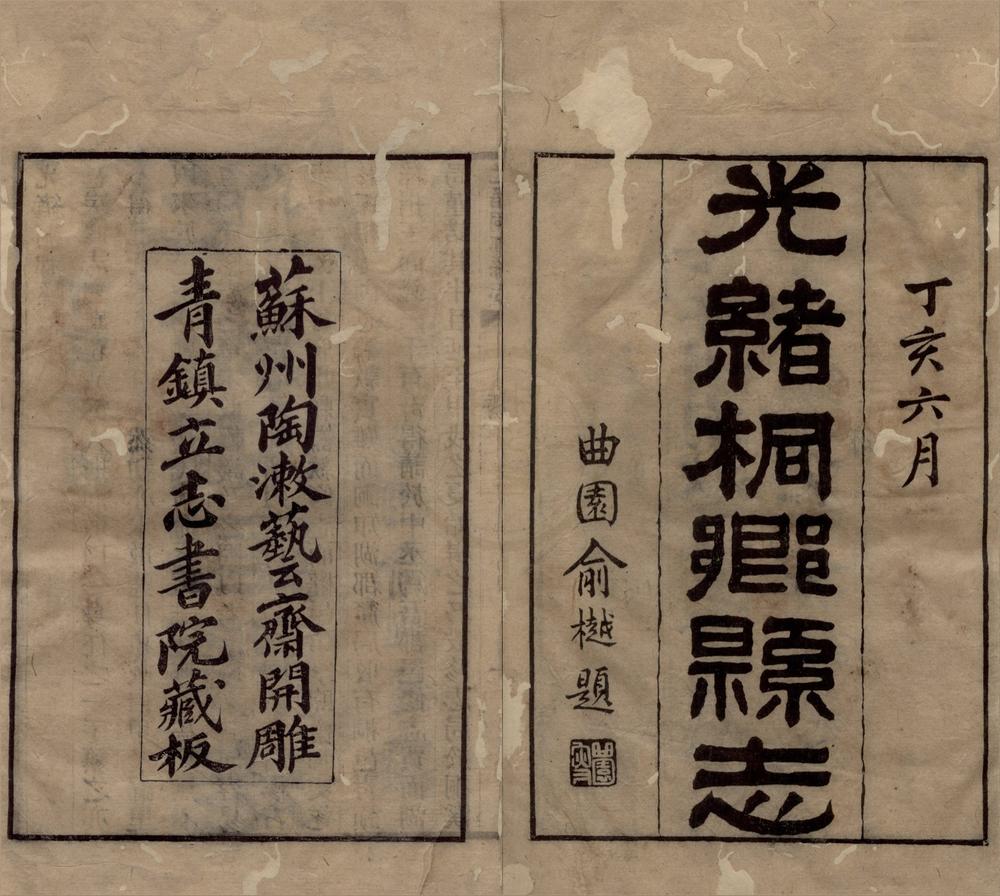 丁亥六月
光緒桐鄉縣志
曲園俞樾題
曲園叟
蘇州陶漱藝齋開雕
青鎮立志書院藏板